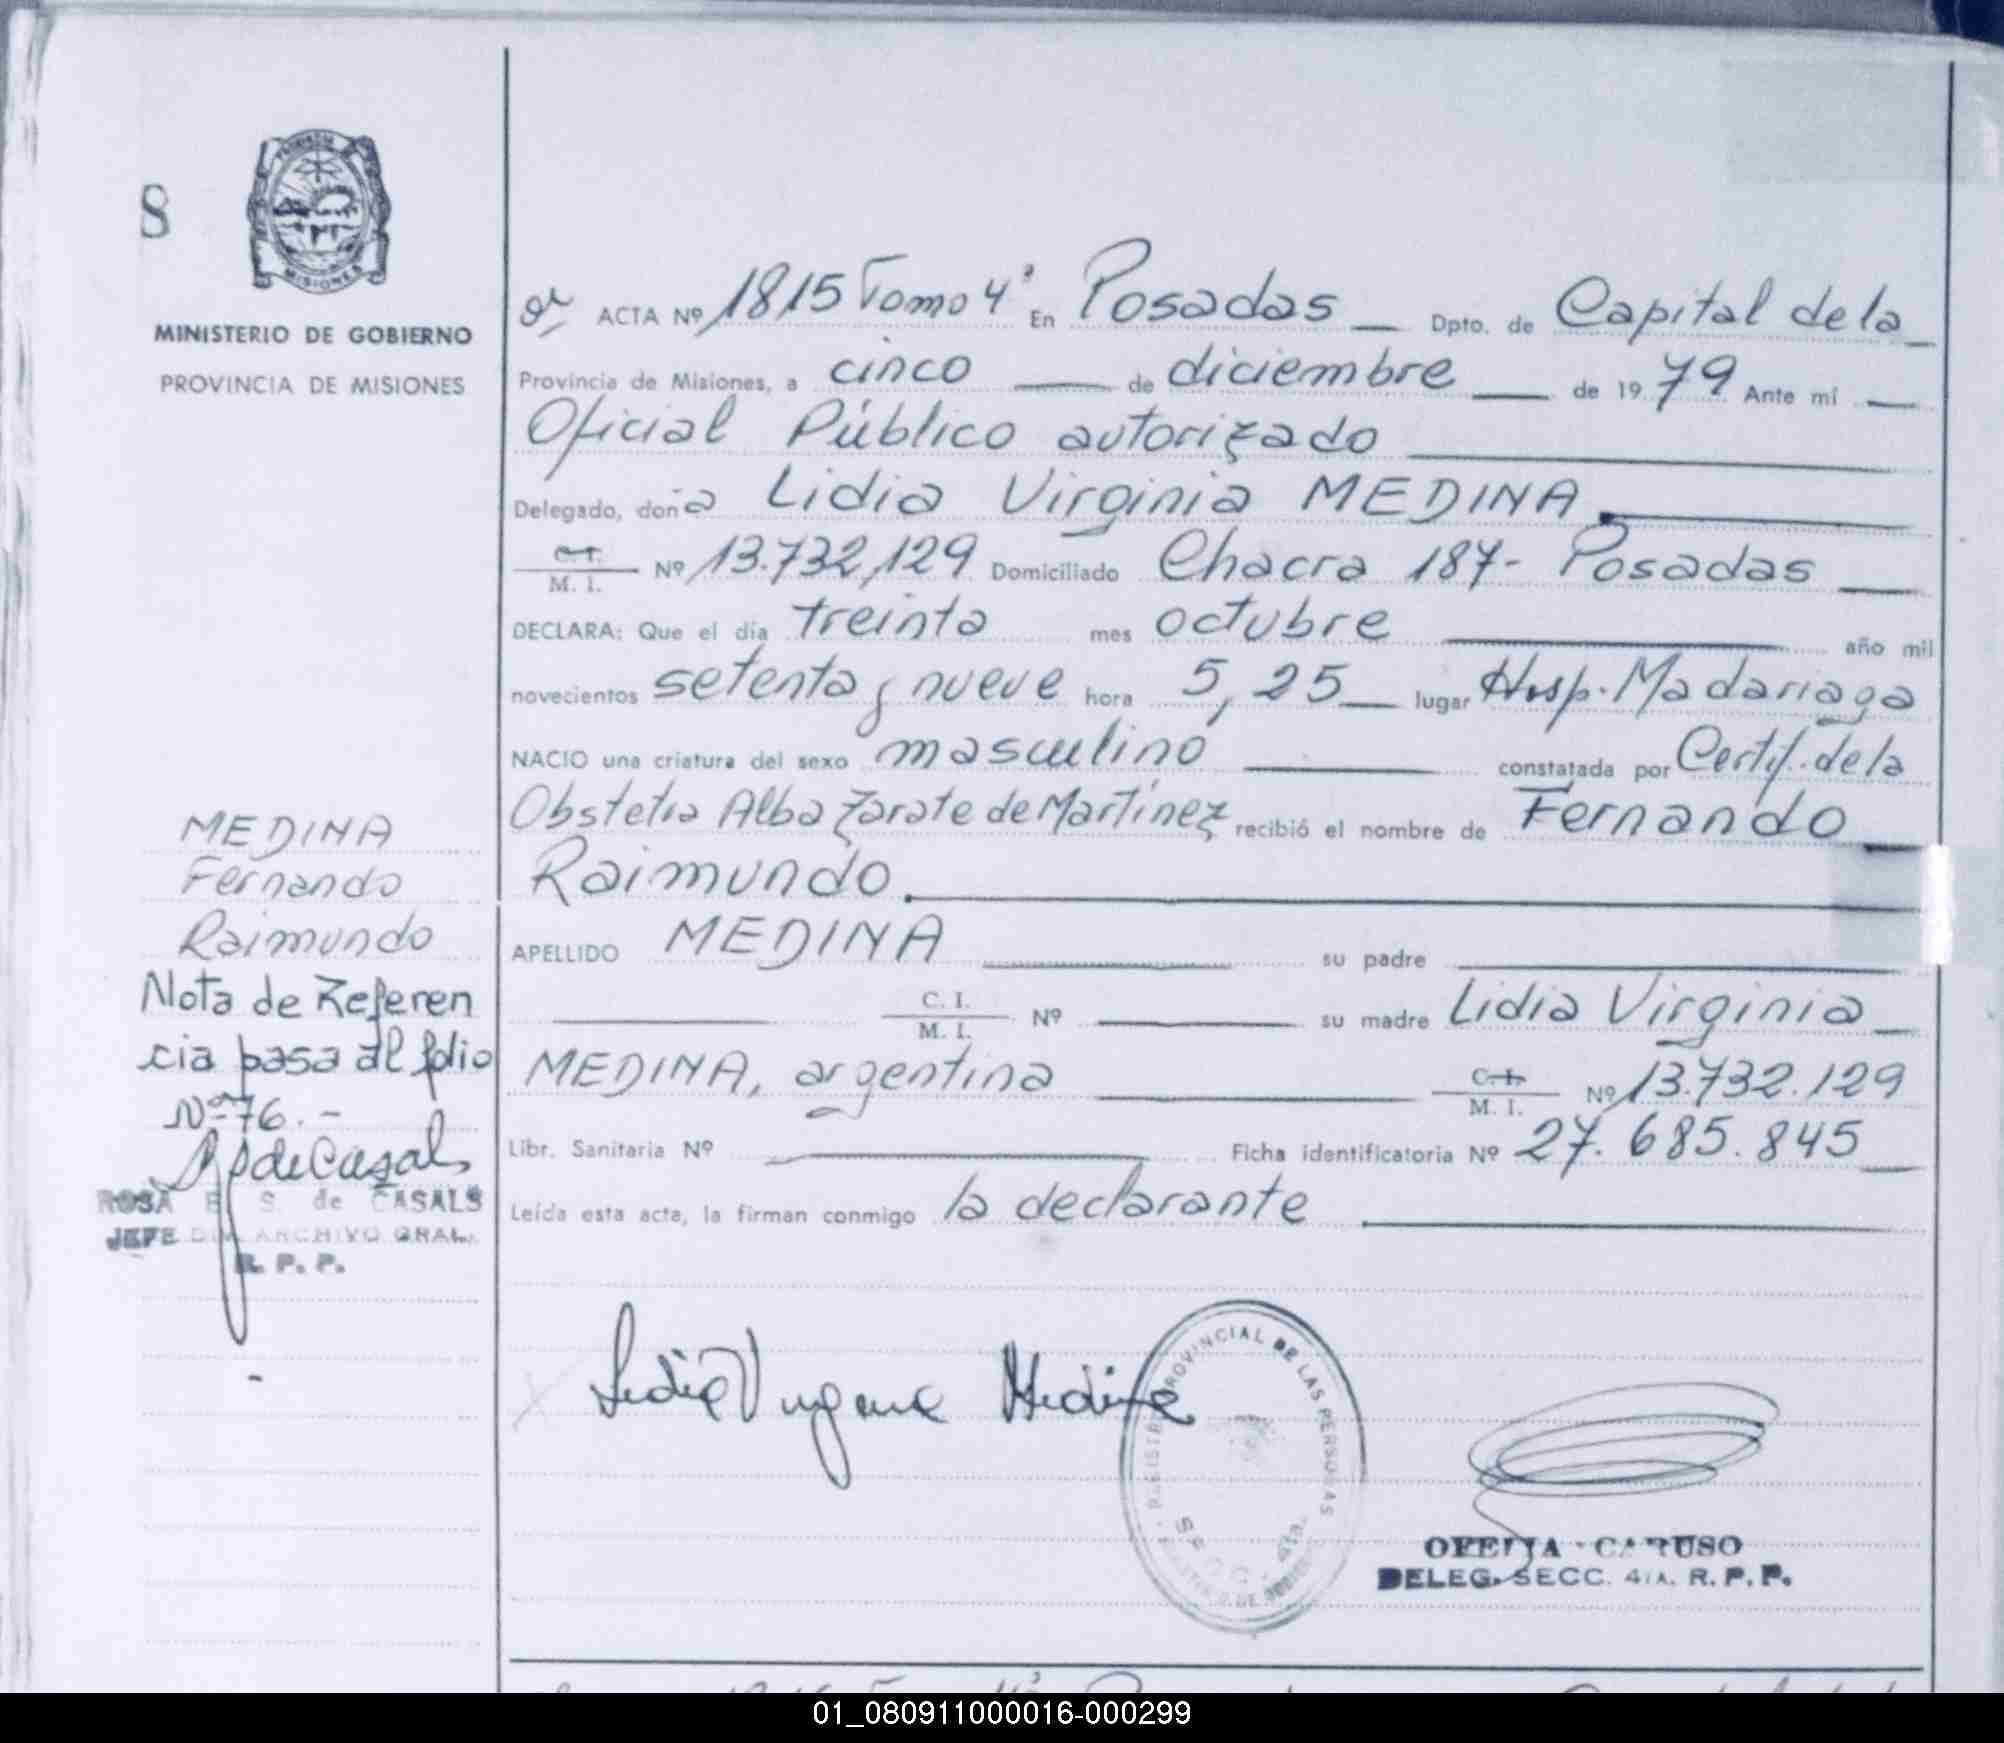 8
PROVINCIA DE
MISIONES
MINISTERIO DE GOBIERNO
PROVINCIA DE MISIONES
ACTA Nº 1815 Tomo 4º En Posadas Dpto. de Capital de la
Provincia de Misiones, a cinco de diciembre de 1979 Ante mí
Oficial Público autorizado
Delegado, doña Lidia Virginia MEDINA
C. I.
M. I. Nº 13.732,129 Domiciliado Chacra 187- Posadas
DECLARA: Que el día treinta mes octubre año mil
novecientos setenta y nueve hora 5,25 lugar Hosp. Madariaga
NACIO una criatura del sexo masculino constatada por Certif. de la
Obstetra Alba Zarate de Martínez recibió el nombre de Fernando
Raimundo.
APELLIDO MEDINA su padre
C. I.
M. I. Nº su madre Lidia Virginia
MEDINA, argentina C. I.
M. I. Nº 13.732.129
Libr. Sanitaria Nº Ficha identificatoria Nº 27.685.845
Leída esta acta, la firman conmigo la declarante
MEDINA
Fernando
Raimundo
Nota de Referen
cia pasa al folio
Nº 76.-
de Casals
ROSA E. S. de CASALS
JEFE DIV. ARCHIVO GRAL.
R. P. P.
Lidia Virginia Medina
REGISTRO PROVINCIAL DE LAS PERSONAS
SECC. 4ta.
OFELIA CARUSO
DELEG. SECC. 4TA. R. P. P.
01_080911000016-000299